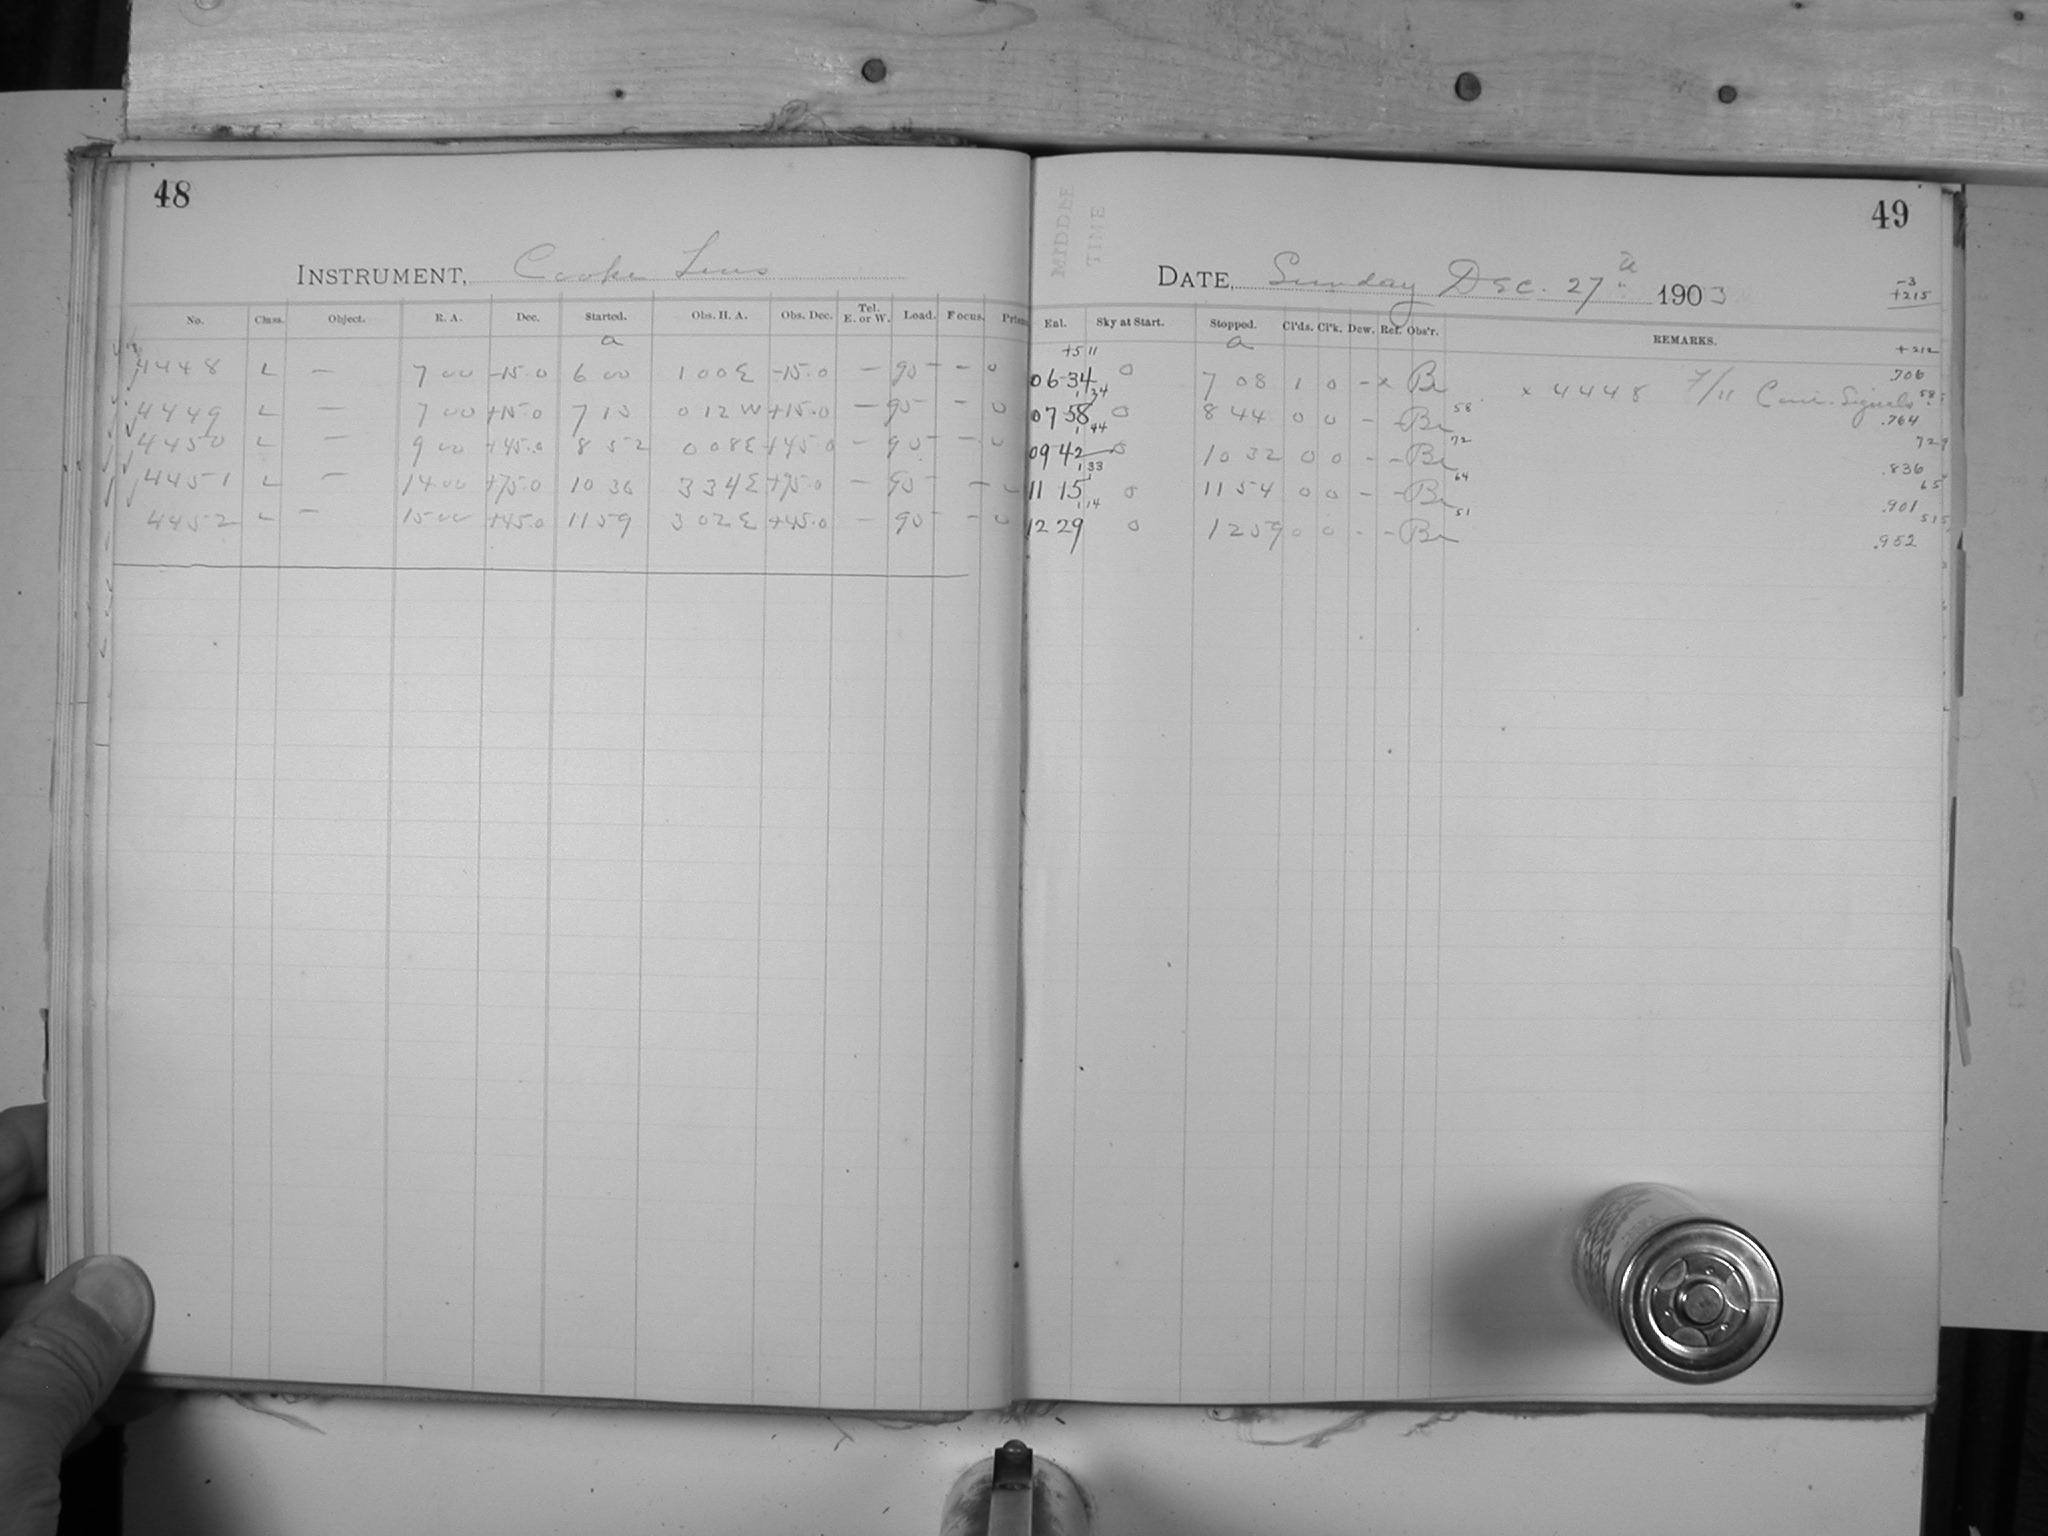 48
INSTRUMENT, Cooke Lens
No. Class. Object. R. A. Dec. Started. Obs. H. A. Obs. Dec. Tel. E. or W. Load. Focus. Prism
a
4448 L — 7 00 -15.0 6 00 1 00 E -15.0 — 90 — — 0
4449 L — 7 00 +15.0 7 13 0 12 W +15.0 — 90 — — 0
4450 L — 9 00 +45.0 8 52 0 08 E +45.0 — 90 — — 0
4451 L — 14 00 +75.0 10 36 3 34 E +75.0 — 90 — —
4452 L — 15 00 +45.0 11 59 3 02 E +45.0 — 90 — — 0
MIDDLE
TIME
49
DATE, Sunday Dec. 27 1903
-3
+215
Enl. Sky at Start. Stopped. Cl'ds. Cl'k. Dew. Ref. Obs'r. REMARKS.
+511 a +212
06 34 0 7 08 1 0 - x Br x 4448 7/11 Signals .706
1 24 58
07 58 0 8 44 0 0 - - Br .764
1 44 72
09 42 0 10 32 0 0 - - Br .836
1 33 64 65
11 15 0 11 54 0 0 - - Br .901
1 14 51 515
12 29 0 12 59 0 0 - - Br .952